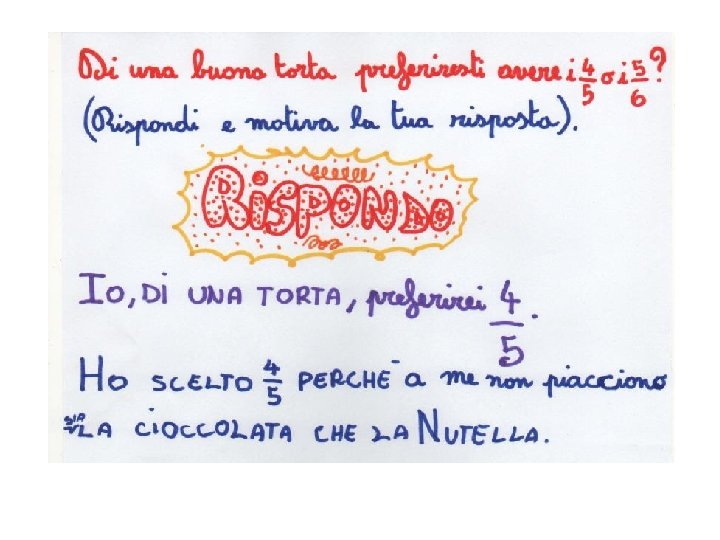 Di una buona torta preferiresti avere i 4/5 o i 5/6?
(Rispondi e motiva la tua risposta).
RISPONDO
IO, DI UNA TORTA, preferirei 4/5.
HO SCELTO 4/5 PERCHÈ a me non piacciono
SIA LA CIOCCOLATA CHE LA NUTELLA.